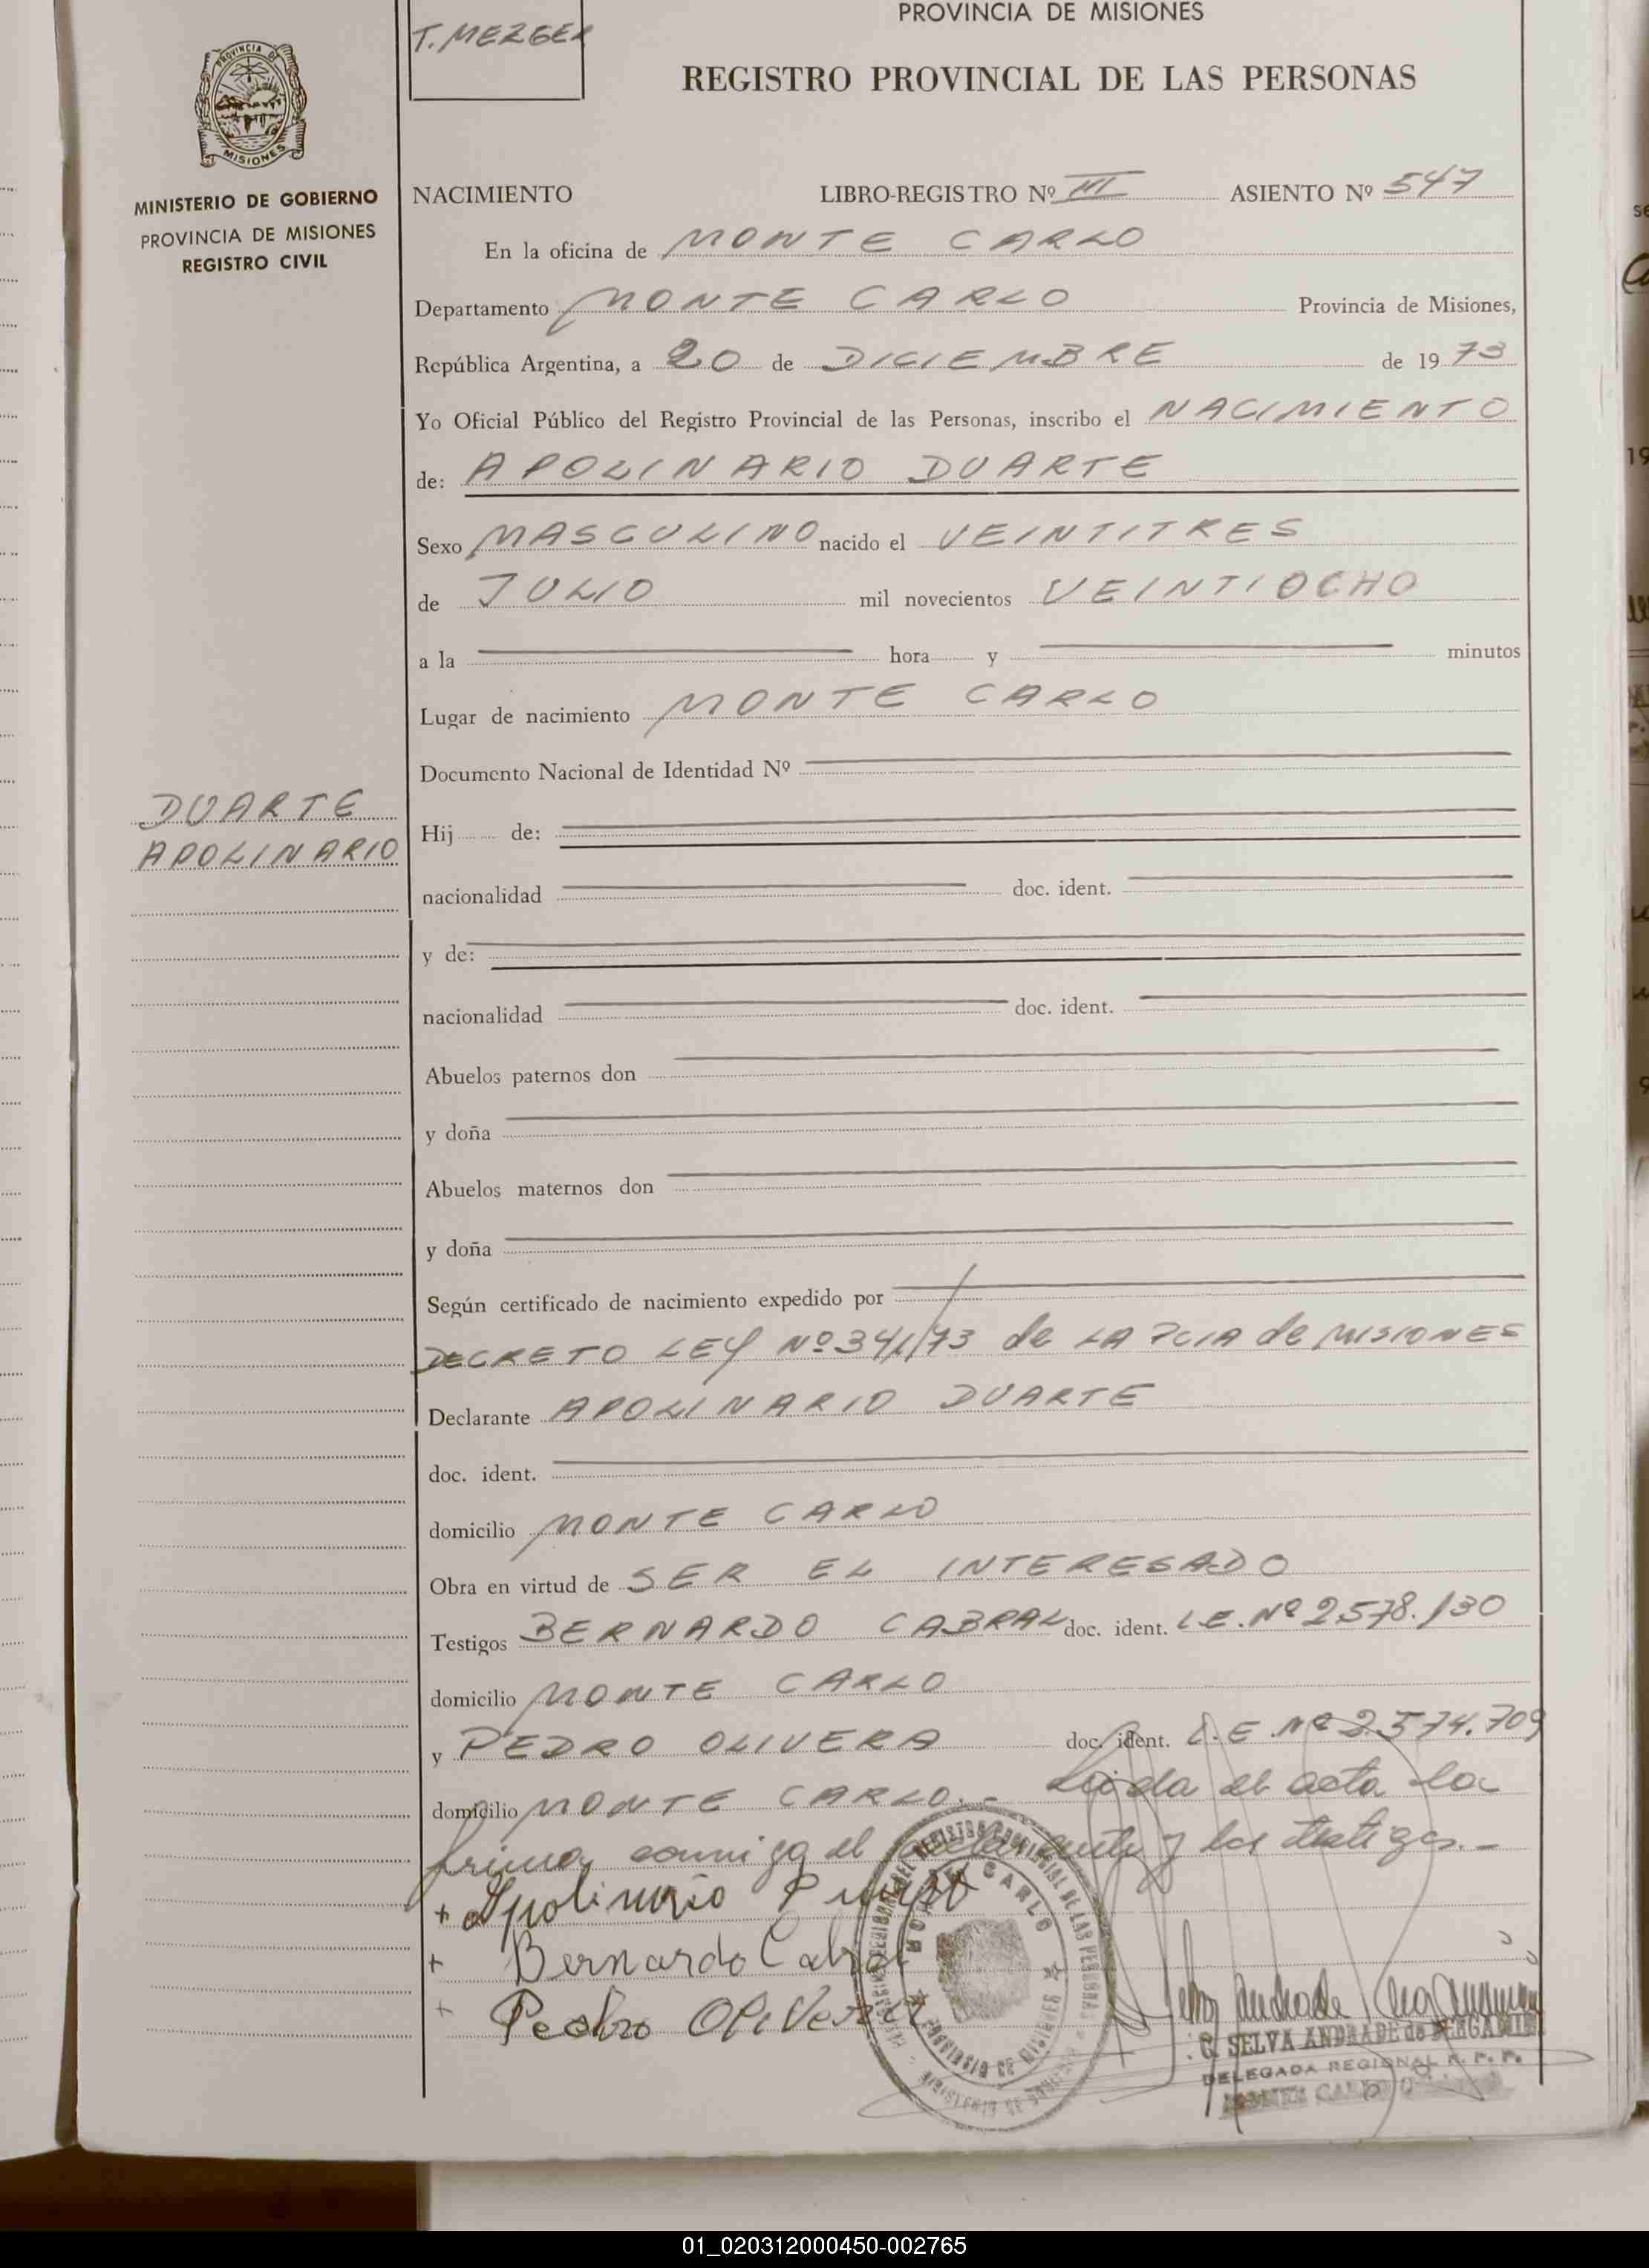 PROVINCIA DE MISIONES
T. MEZGER
REGISTRO PROVINCIAL DE LAS PERSONAS
PROVINCIA DE
MISIONES
MINISTERIO DE GOBIERNO
PROVINCIA DE MISIONES
REGISTRO CIVIL
NACIMIENTO LIBRO-REGISTRO Nº III ASIENTO Nº 547
En la oficina de MONTE CARLO
Departamento MONTE CARLO Provincia de Misiones,
República Argentina, a 20 de DICIEMBRE de 1973
Yo Oficial Público del Registro Provincial de las Personas, inscribo el NACIMIENTO
de: APOLINARIO DUARTE
Sexo MASCULINO nacido el VEINTITRES
de JULIO mil novecientos VEINTIOCHO
a la hora y minutos
Lugar de nacimiento MONTE CARLO
Documento Nacional de Identidad Nº
DUARTE
APOLINARIO
Hij de:
nacionalidad doc. ident.
y de:
nacionalidad doc. ident.
Abuelos paternos don
y doña
Abuelos maternos don
y doña
Según certificado de nacimiento expedido por
DECRETO LEY Nº 341/73 de LA PCIA de MISIONES
Declarante APOLINARIO DUARTE
doc. ident.
domicilio MONTE CARLO
Obra en virtud de SER EL INTERESADO
Testigos BERNARDO CABRAL doc. ident. L.E. Nº 2.578.130
domicilio MONTE CARLO
y PEDRO OLIVERA doc. ident. L.E Nº 2.574.709
domicilio MONTE CARLO.- Leida el acta la
firman conmigo el declarante y los testigos.-
+ Apolinario
+ Bernardo Cabral
+ Pedro OliVera
MONTE CARLO
MISIONES
G. SELVA ANDRADE de BERGAMIN
DELEGADA REGIONAL R. P. P.
01_020312000450-002765